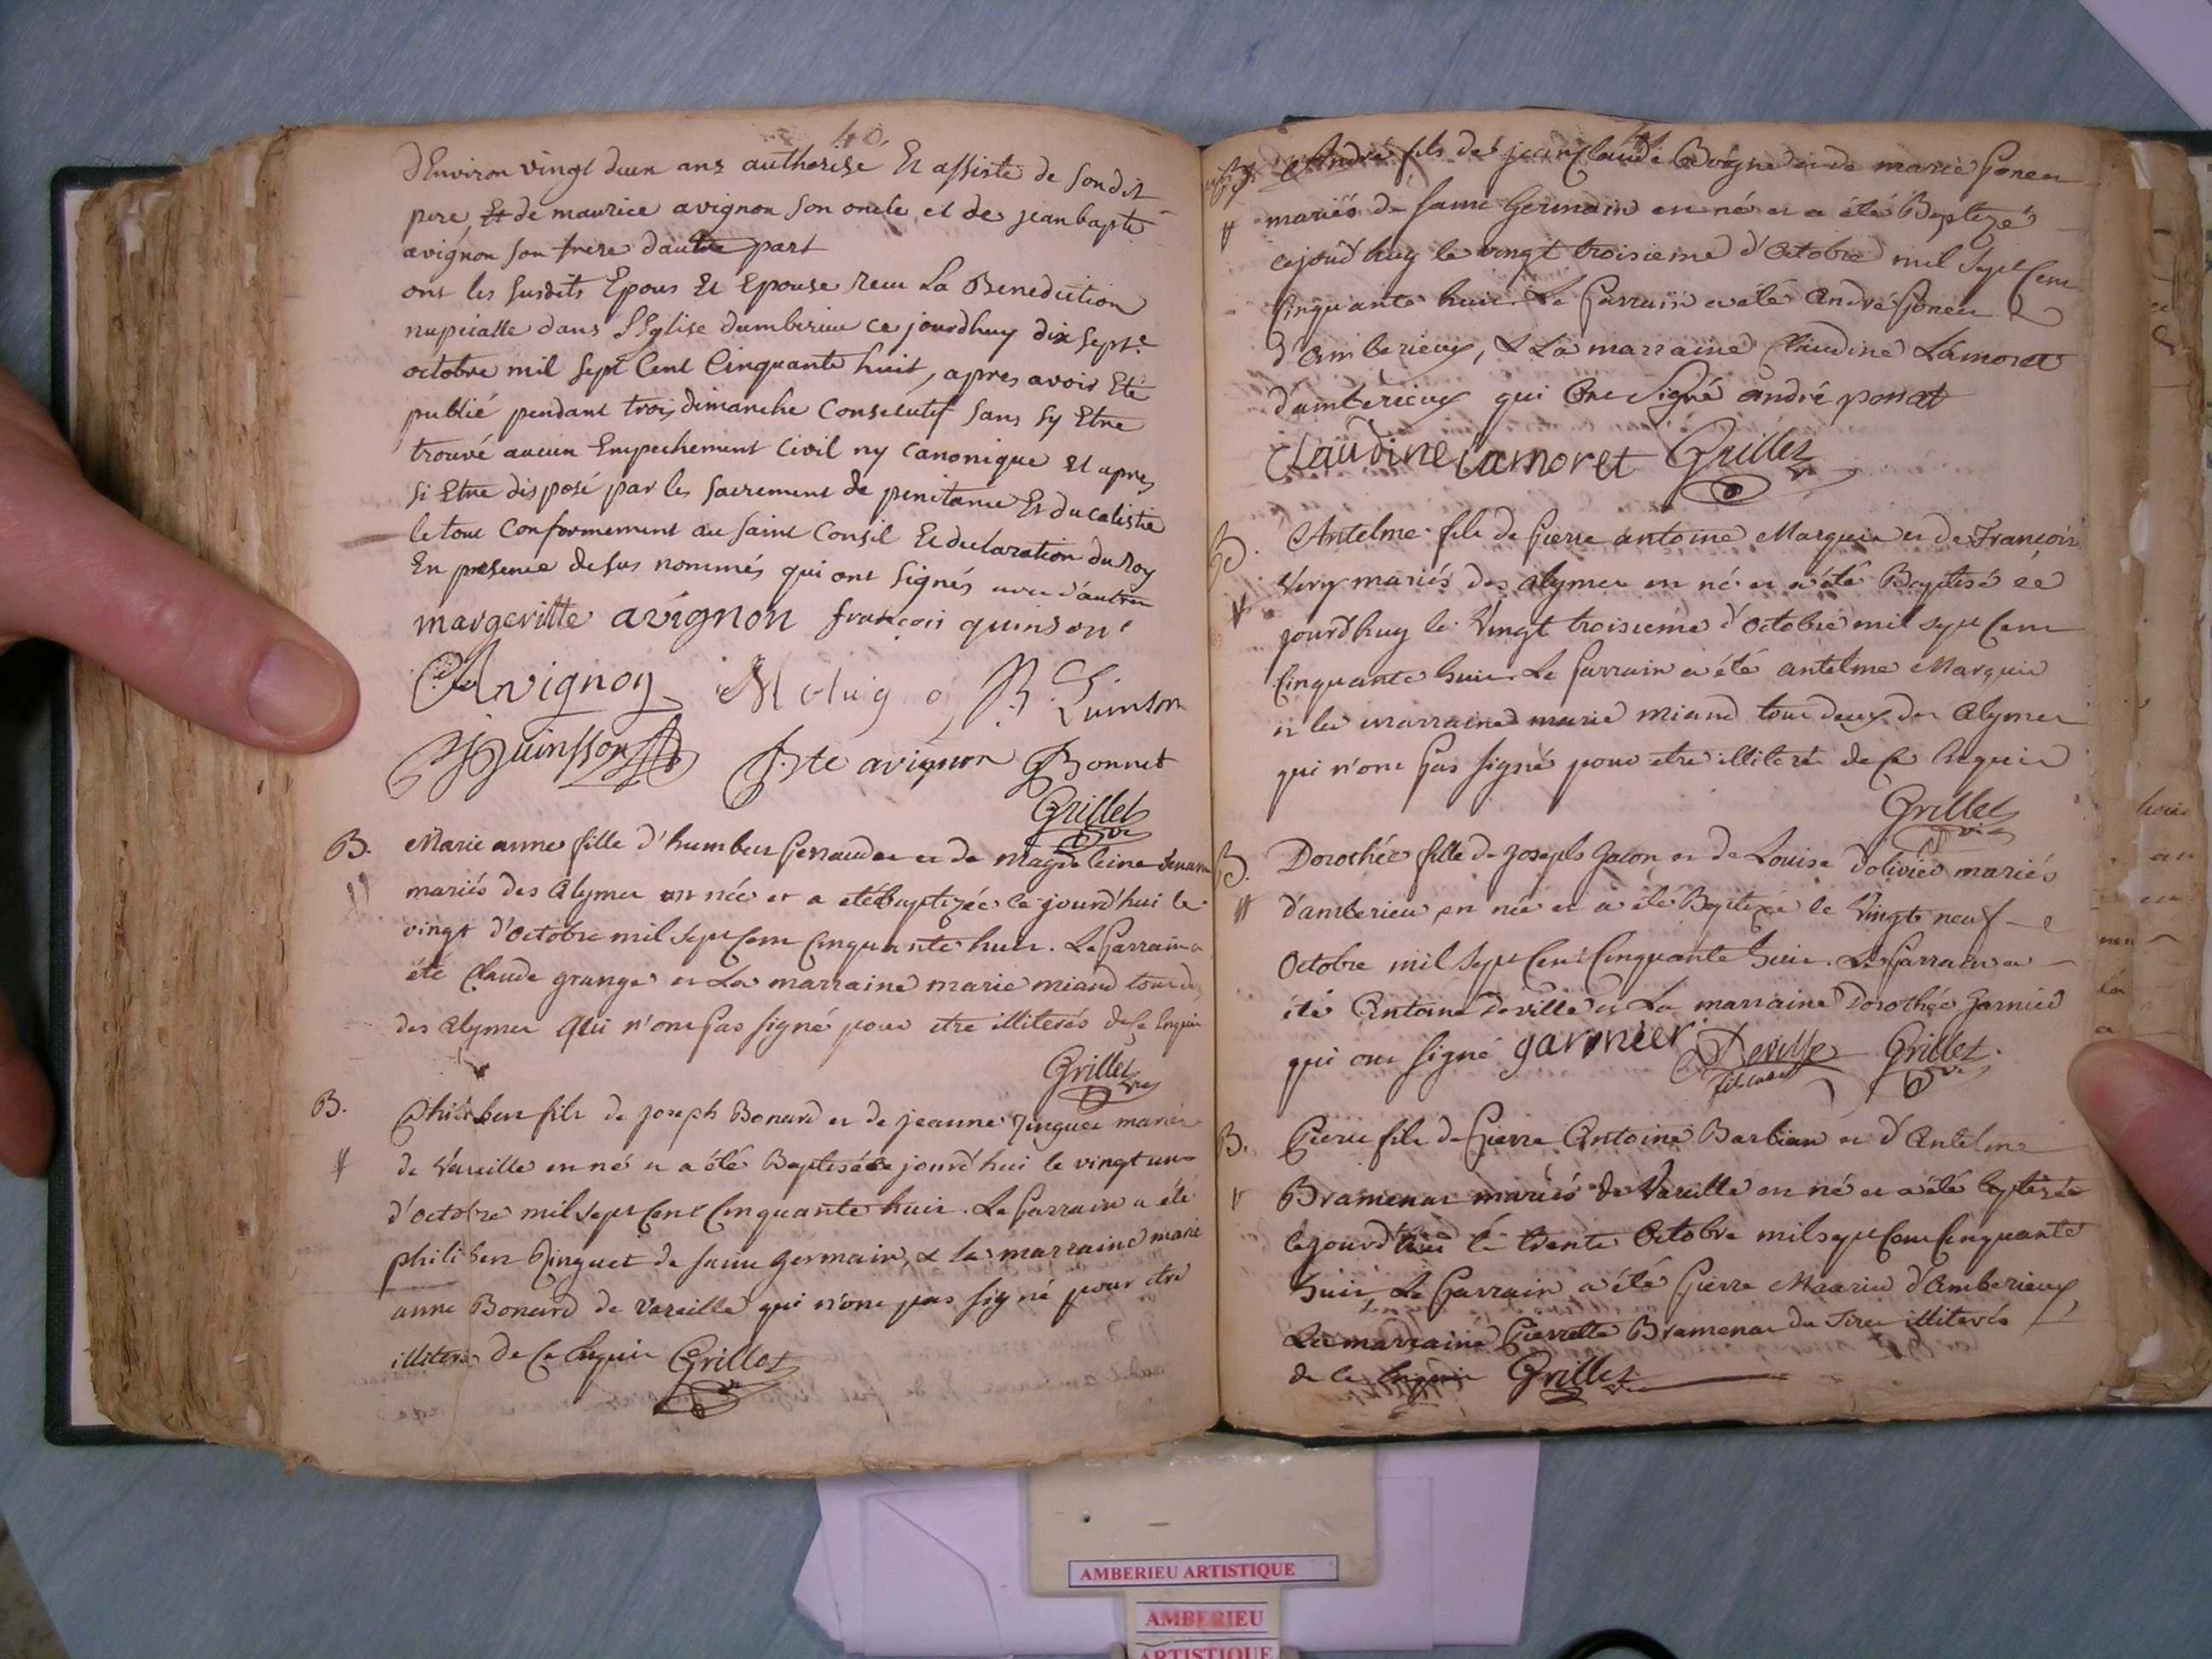 40
dEnviron vingt deux ans authorisé Et assisté de son dit
pere, Et de maurice avignon son oncle, et de jean bapte
avignon son frere dautre part
ont les susdits Epous Et Epouse reçu La Benediction
nupcialle dans L'Eglise damberieu ce jourdhuy dix septe
octobre mil sept Cent Cinquante huit, apres avoir Eté
publié pendant trois dimanche Consecutif sans sy Etre
trouvé aucun Empechement Civil ny Canonique Et apres
si Etre disposé par les sacrement de penitance Et Eucalistie
le tout Conformement au saint Consil Et declaration du Roy
En presence desus nommés qui ont signés avec d'autres
margeritte avignon françois quinson
Avignon R. Quinson
Quinsson Bte avignon Bonnet
Grillet vic
B. Marie anne fille d'humbert perraudet et de Magdeleine
mariés des alymes est née et a eté baptizée ce jourd'hui le
vingt d'Octobre mil sept Cent Cinquante huit. Le Parrain a
été Claude grange et La marraine marie miand tous deux
des alymes qui n'ont pas signé pour etre illiterés de ce Enquis
Grillet vic
B. Philibert fils de joseph Bonard et de jeanne Zinguet mariés
de Vareille est né et a été Baptisé ce jourd'hui le vingt un
d'Octobre mil sept Cent Cinquante huit. Le Parrain a été
philibert Zinguet de saint germain, & la marraine marie
anne Bonard de vareille qui n'ont pas signé pour etre
illiterés de ce Enquis Grillet
41
André fils de jean Claude et de marie Ponat
mariés de saint Germain est né et a été Baptizé
cejourd'huy le vingt troisieme d'Octobre mil sept Cent
Cinquante huit. Le Parrain a été André Ponat
d'amberieux, & La marraine Claudine Lamoret
d'amberieux qui Ont Signé andré ponat
Claudine Lamoret Grillet
B. Antelme fils de Pierre antoine Marquis et de Francoise
Very mariés des alymes est né et a été Baptisé ce
jourdhuy le Vingt troisiéme d'Octobre mil sept Cent
Cinquante huit. Le Parrain a été antelme Marquis
et la marraine marie miand tous deux des alymes
qui n'ont pas signé pour etre illiteré de ce Enquis
Grillet vic
B. Dorothée fille de Joseph Jacon et de Louise dolivier mariés
d'amberieu est née et a été Baptizée le Vingt neuf
Octobre mil sept Cent Cinquante huit. Le Parrain a
été Antoine Deville et La marraine Dorothée Garnier
qui ont signé garnier Deville Grillet
B. Pierre fils de Pierre Antoine Barbian et d'Antelme
Bramenat mariés de Vareille est né et a été baptisée
cejourd'hui le trente Octobre mil sept Cent Cinquante
huit, Le Parrain a été Pierre d'Amberieux,
La marraine Pierrette Bramenat du Tiret illiterés
de ce Enquis Grillet vic
AMBERIEU ARTISTIQUE
AMBERIEU
ARTISTIQUE